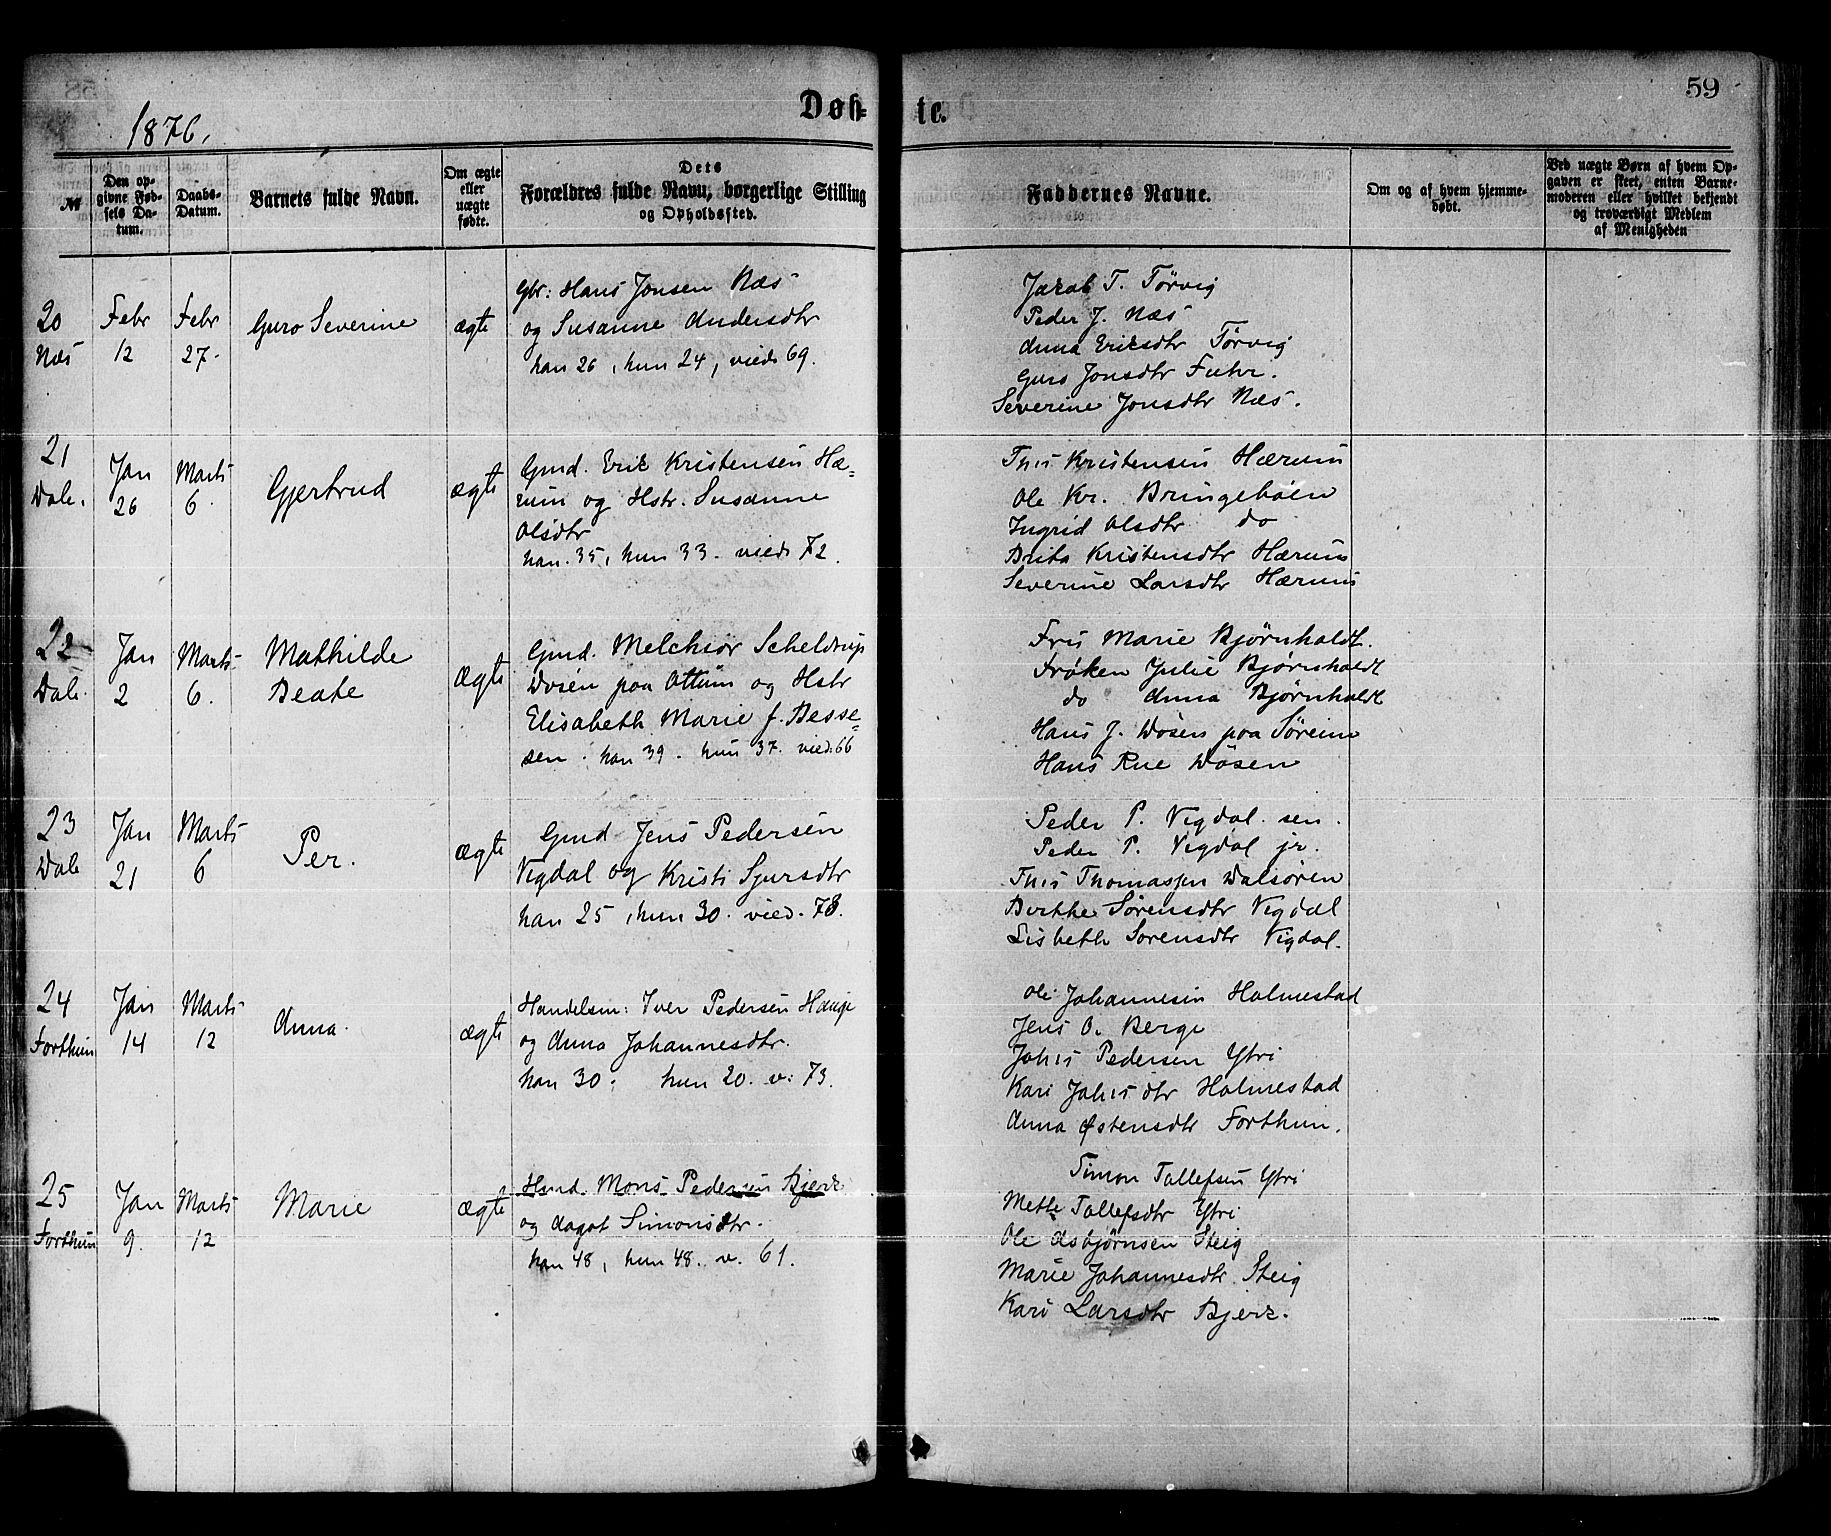 59
1876.
Døb-
te.
№
Den op-
givne Fød-
sels Da-
tum.
Daabs-
Datum.
Barnets fulde Navn.
Om ægte
eller
uægte
fødte.
Dets
Forældres fulde Navn, borgerlige Stilling
og Opholdssted.
Faddernes Navne.
Om og af hvem hjemme-
døbt.
Ved uægte Børn af hvem Op-
gaven er skeet, enten Barne-
moderen eller hvilket bekjendt
og troværdigt Medlem
af Menigheden
20
Næs
Febr
12
Febr
27.
Guro Severine
ægte
Gbr: Hans Jonsen Næs
og Susanne Andersdtr
han 26, hun 24, viede 69.
Jacob T. Tørvig
Peder J. Næs
Anna Ericsdtr Tørvig
Guro Jonsdtr Fuhr.
Severine Jonsdtr Næs.
21
Dale.
Jan
26
Marts
6.
Gjertrud
ægte
Gmd. Eric Kristensen Hæ=
rum og Hstr. Susanne
Olsdtr
han. 35, hun 33. viede 72.
Ths Kristensen Hærum
Ole Kr. Bringebøen
Ingrid Olsdtr do
Brita Kristensdtr Hærum
Severine Larsdtr Hærum
22
Dale.
Jan
2
Marts
6.
Mathilde
Beate
ægte
Gmd. Melchior Scheldrup
Døsen paa Ottum og Hstr
Elisabeth Marie f. Besse=
sen. han 39. hun 37. vied. 66
Fru Marie Bjørnholdt.
Frøken Julie Bjørnholdt
do Anna Bjørnholdt
Hans J. Døsen paa Søreim
Hans Rue Døsen
23
Dale
Jan
21
Marts
6
Per.
ægte
Gmd Jens Pedersen
Vigdal og Kristi Sjursdtr
han 25, hun 30. vied. 73.
Peder P. Vigdal sen.
Peder P. Vigdal jr.
Ths Thomassen Dalsøren
Berthe Sørensdtr Vigdal
Lisbeth Sørensdtr Vigdal.
24
Forthun
Jan
14
Marts
12
Anna.
ægte
Handelsm: Iver Pedersen Hauge
og Anna Johannesdtr.
han 30. hun 20. v. 73.
Ole Johannesen Holmestad
Jens O. Berge
Johs Pedersen Ytri
Kari Johsdtr Holmestad
Anna Østensdtr Forthun.
25
Forthun
Jan
9.
Marts
12
Marie
ægte
Hmd. Mons Pedersen Bjerk
og Aagot Simonsdtr.
han 48, hun 48. v. 61.
Simon Tollefsen Ytri
Mette Tollefsdtr Ytri
Ole Asbjørnsen Steig
Marie Johannesdtr. Steig
Kari Larsdtr Bjerk.